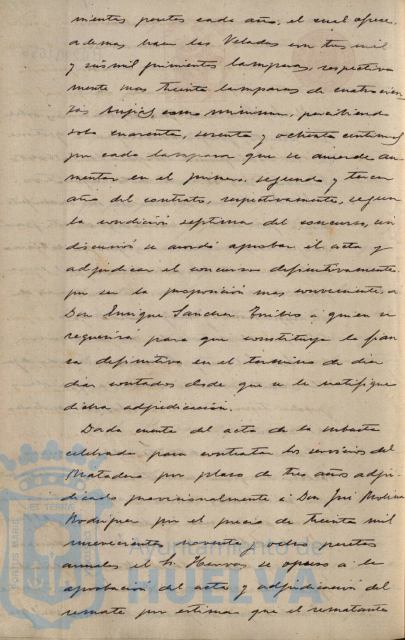 mientas pesetas cada año, el cual ofrece
ademas hacer las Veladas con tres mil
y seis mil quinientas lamparas, respectiva
mente mas treinta lamparas de cuatrocien
tas bujias como minimum, percibiendo
solo cuarenta, sesenta y ochenta centimos
por cada lampara que se aumente
en el primero, segundo y tercer
año del contrato, respectivamente, segun
la condición septima del concurso, sin
discusión se acordó aprobar el acta y
adjudicar el concurso definitivamente
por ser la proposición mas conveniente, a
Don Enrique Sanchez á quien se
requerirá para que constituya la fian
za definitiva en el termino de diez
dias contados desde que se le notifique
dicha adjudicación.
Dada cuenta del acta de la subasta
celebrada para contratar los servicios del
Matadero por plazo de tres años adju
dicado provisionalmente á Don José Molina
Rodriguez por el precio de treinta mil
novecientas noventa y ocho pesetas
anuales el Sr. se opuso á la
aprobación del acta y adjudicación del
remate por estimar que el rematante
Ayuntamiento de
HUELVA